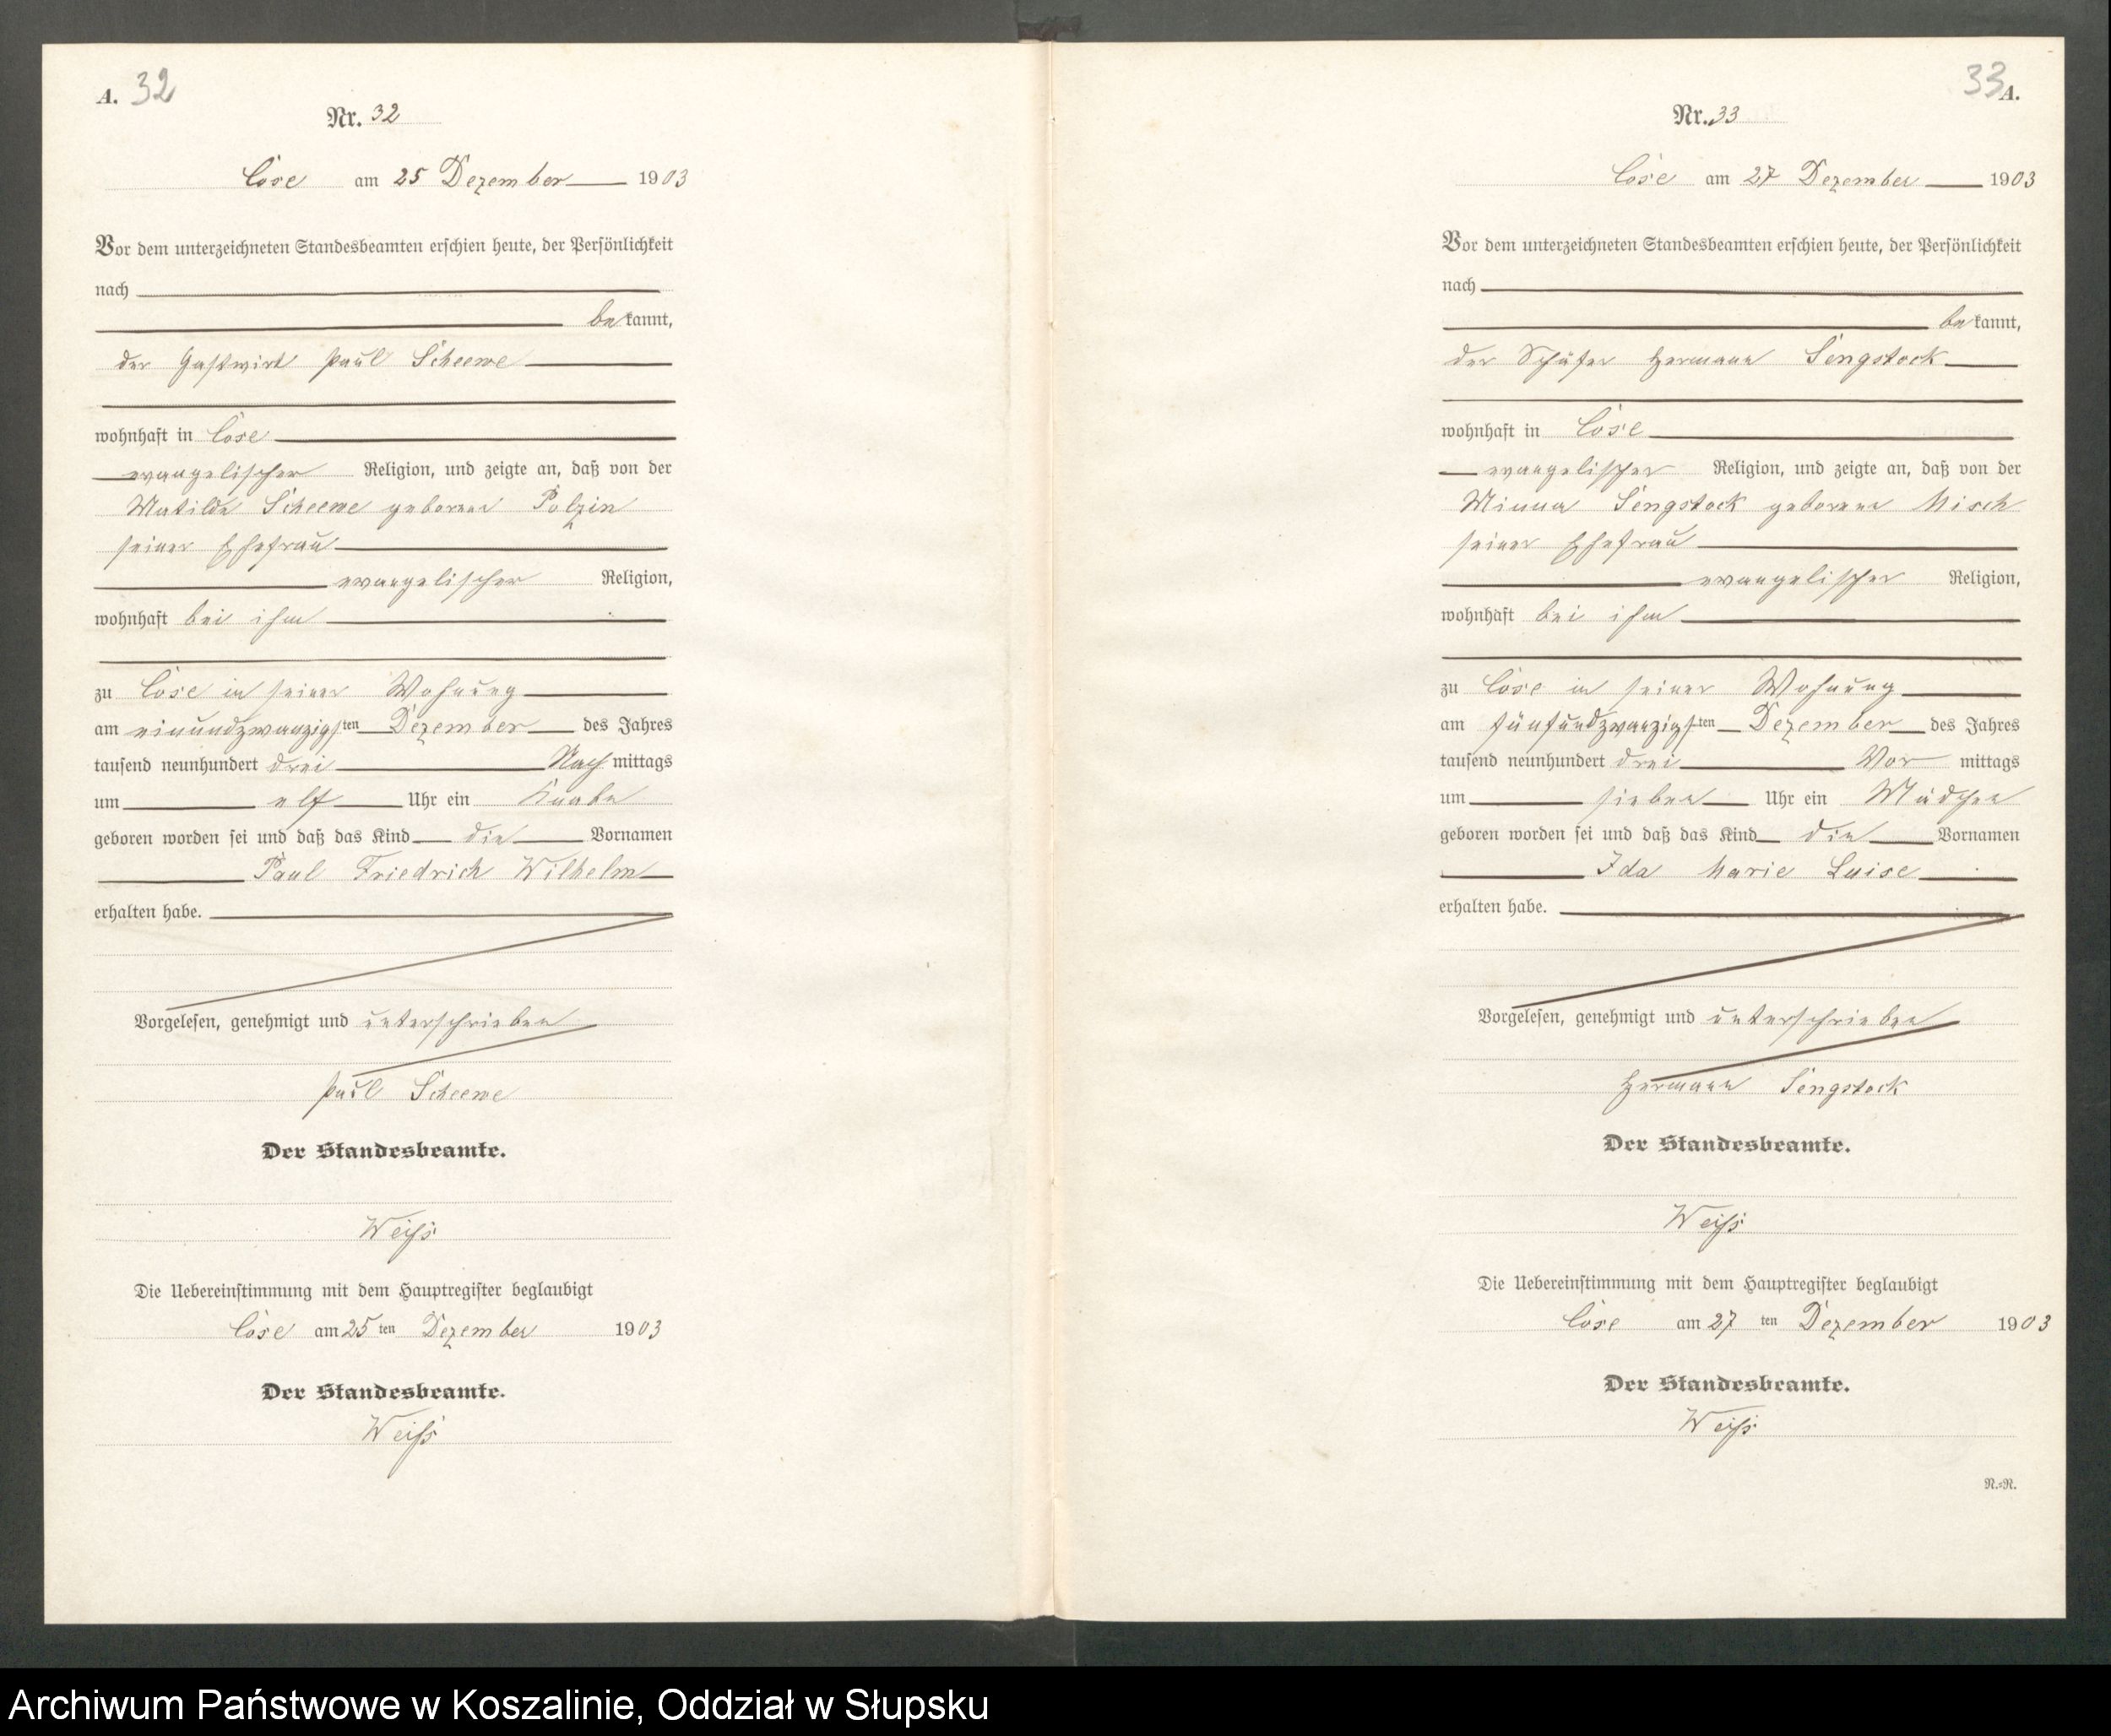 A. 32
Nr. 32
Cose am 25 Dezember 1903
Vor dem unterzeichneten Standesbeamten erschien heute, der Persönlichkeit
nach
bekannt,
der Gastwirt Paul Scheewe
wohnhaft in Cose
evangelischer Religion, und zeigte an, daß von der
Matilde Scheewe geborene Polzin
seiner Ehefrau
evangelischer Religion,
wohnhaft bei ihm
zu Cose in seiner Wohnung
am einundzwanzigsten Dezember des Jahres
tausend neunhundert drei Nachmittags
um elf Uhr ein Knabe
geboren worden sei und daß das Kind die Vornamen
Paul Friedrich Wilhelm
erhalten habe.
Vorgelesen, genehmigt und unterschrieben
Paul Scheewe
Der Standesbeamte.
Weiß
Die Uebereinstimmung mit dem Hauptregister beglaubigt
Cose am 25ten Dezember 1903
Der Standesbeamte.
Weiß
33 A.
Nr. 33
Cose am 27 Dezember 1903
Vor dem unterzeichneten Standesbeamten erschien heute, der Persönlichkeit
nach
bekannt,
der Schäfer Hermann Sengstock
wohnhaft in Cose
evangelischer Religion, und zeigte an, daß von der
Minna Sengstock geborene Misch
seiner Ehefrau
evangelischer Religion,
wohnhaft bei ihm
zu Cose in seiner Wohnung
am fünfundzwanzigsten Dezember des Jahres
tausend neunhundert drei Vormittags
um sieben Uhr ein Mädchen
geboren worden sei und daß das Kind die Vornamen
Ida Marie Luise
erhalten habe.
Vorgelesen, genehmigt und unterschrieben
Hermann Sengstock
Der Standesbeamte.
Weiß
Die Uebereinstimmung mit dem Hauptregister beglaubigt
Cose am 27ten Dezember 1903
Der Standesbeamte.
Weiß
N.=N.
Archiwum Państwowe w Koszalinie, Oddział w Słupsku